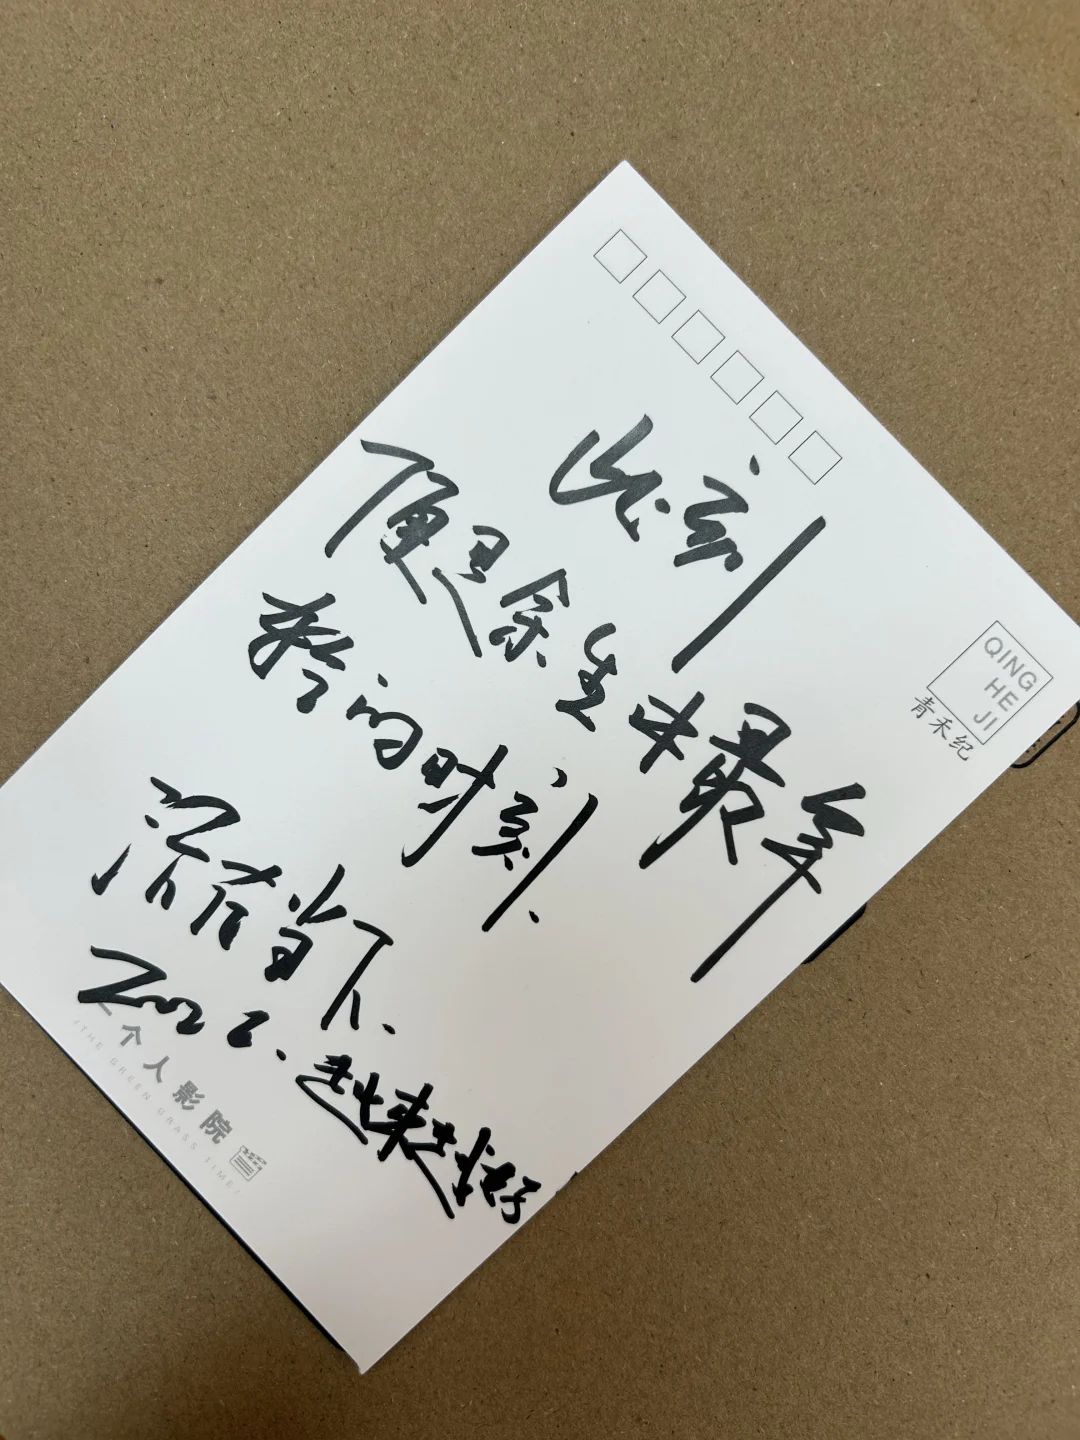 此刻
便是余生中最年
轻的时刻.
活在当下.
越来越好
QING
HE
JI
青禾纪
一个人影院
/THE GREEN GRASS TIME/